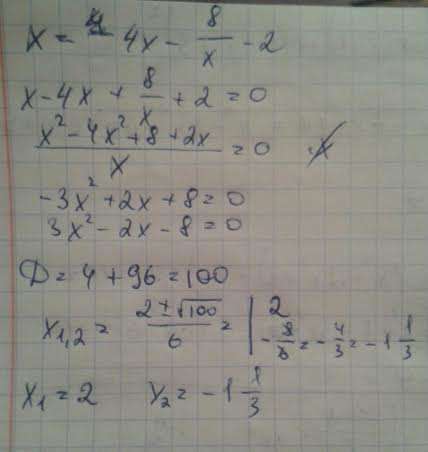 x = 4x - 8/x - 2
x - 4x + 8/x + 2 = 0
(x² - 4x² + 8 + 2x)/x = 0
-3x² + 2x + 8 = 0
3x² - 2x - 8 = 0
D = 4 + 96 = 100
x₁,₂ = (2 ± √100)/6 = | 2
-8/6 = -4/3 = -1 1/3
x₁ = 2 x₂ = -1 1/3